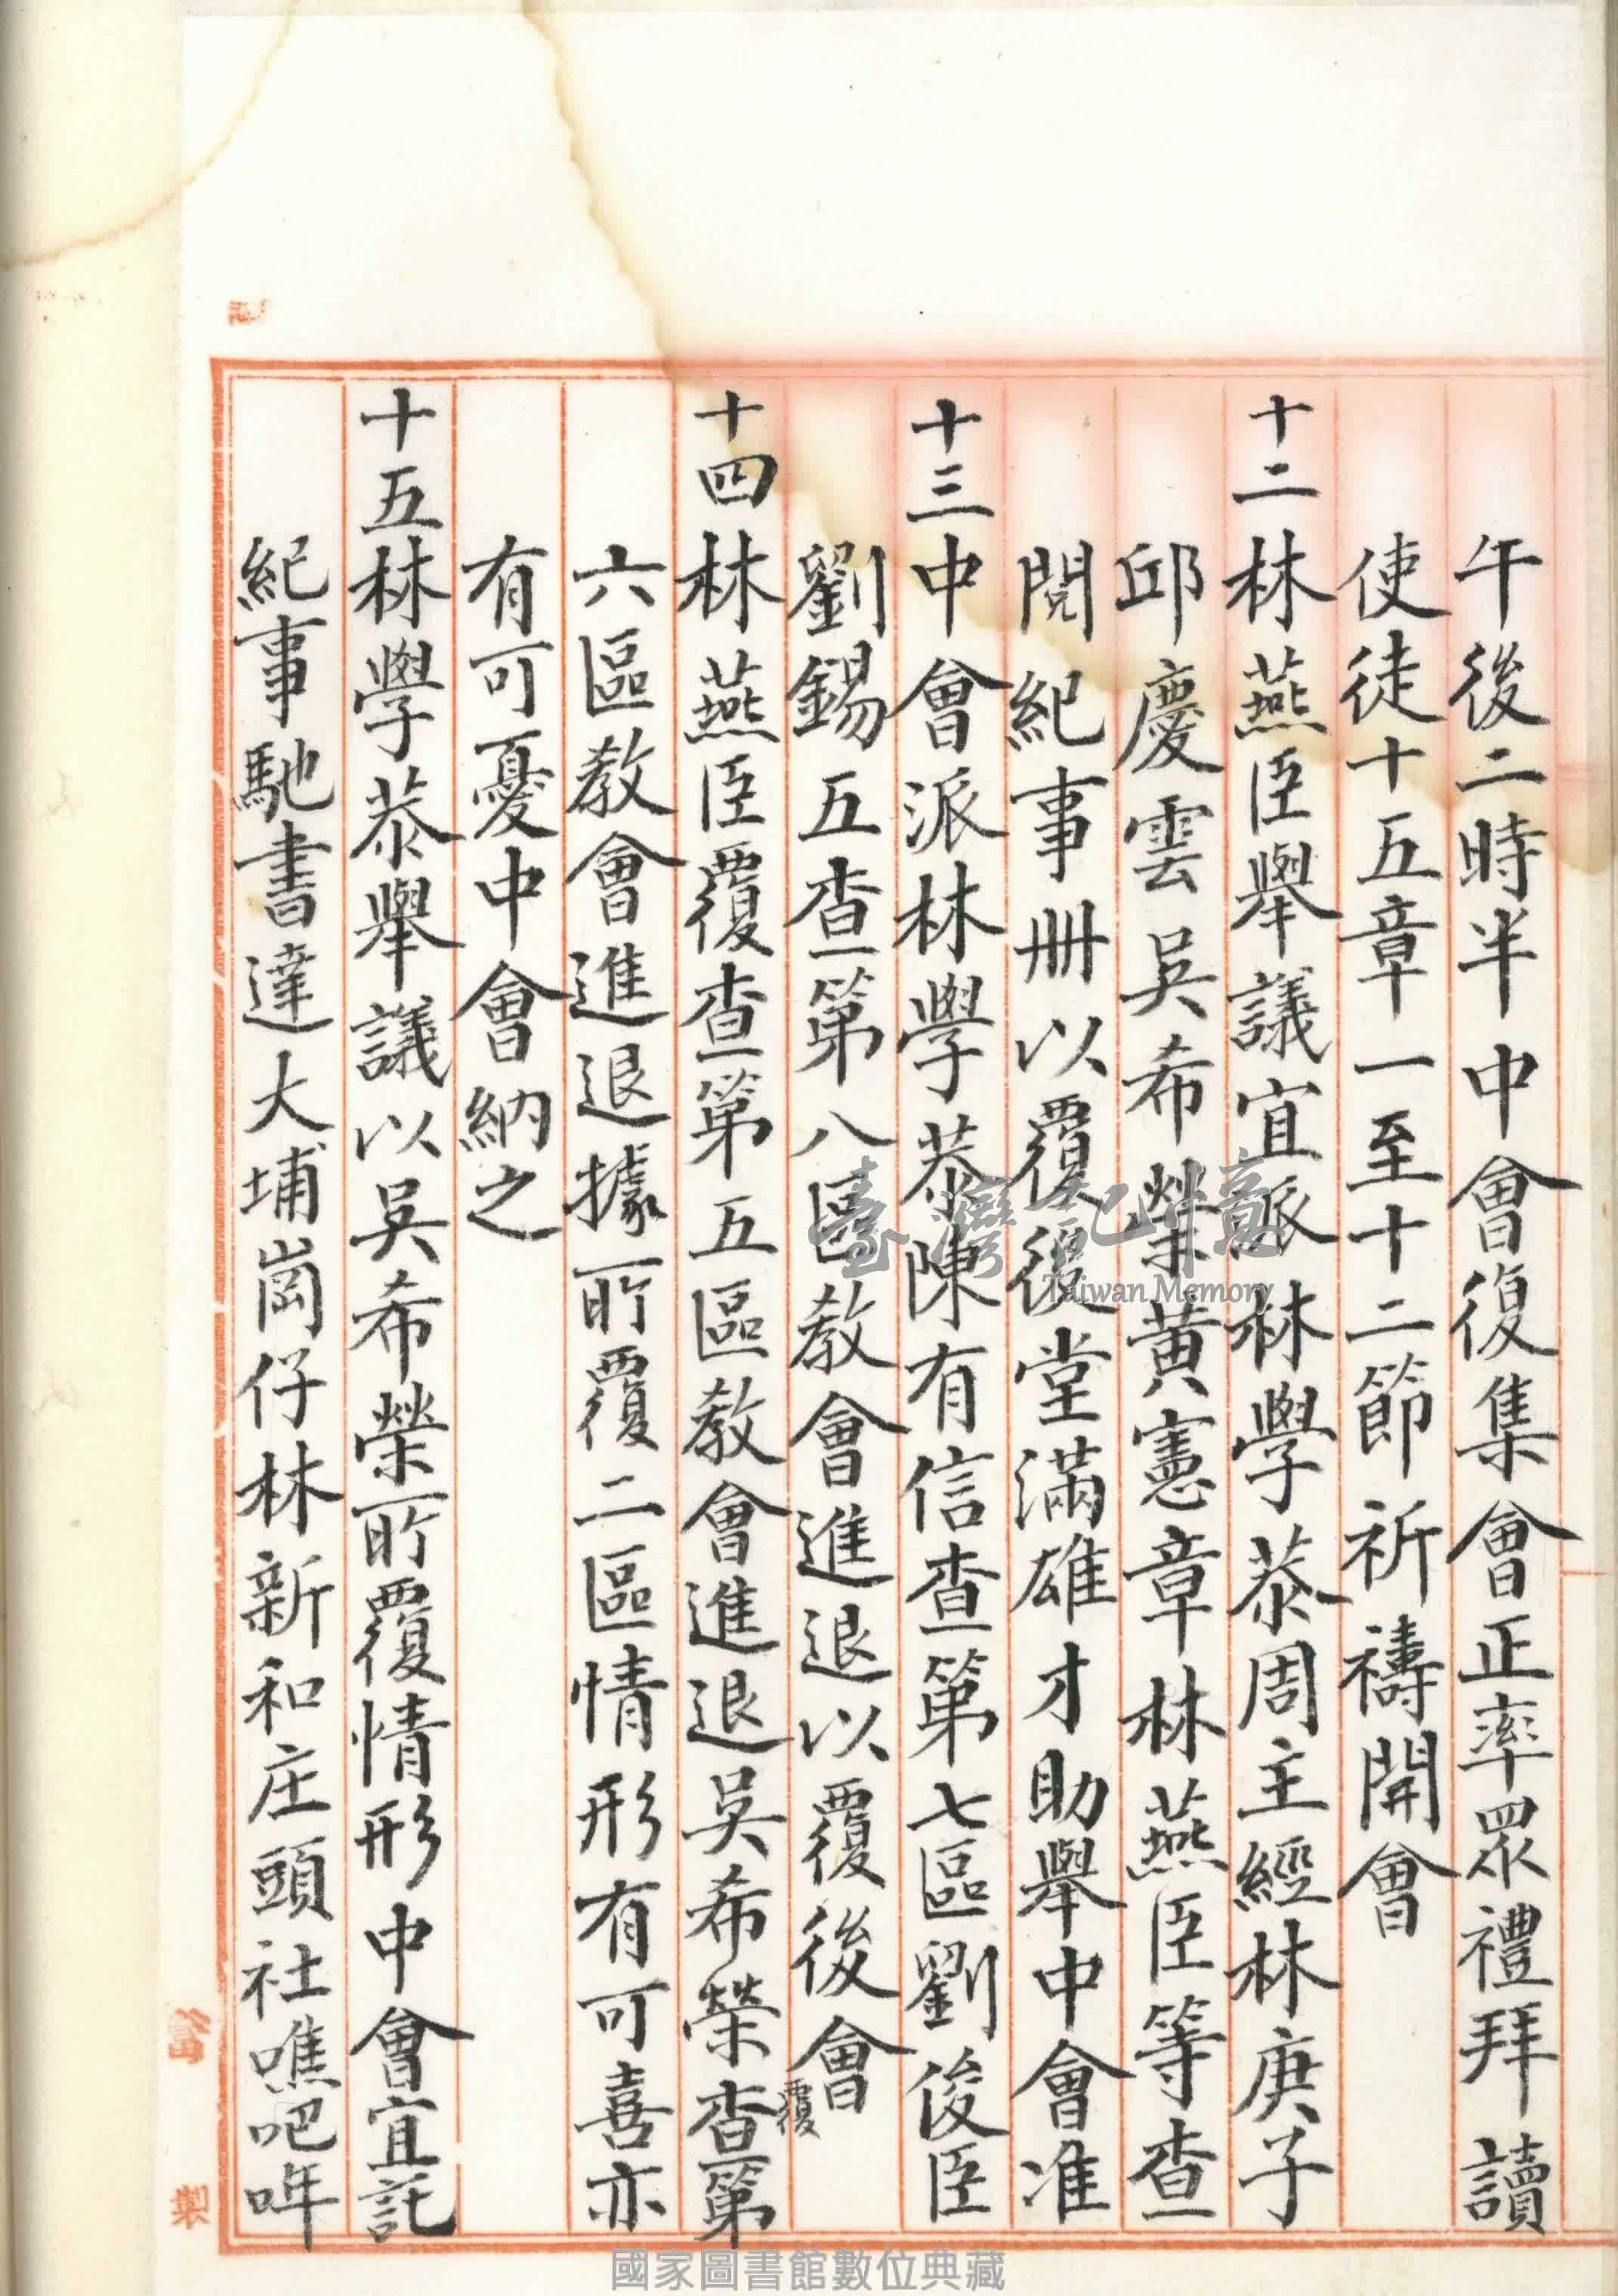 午後二時半中會復集會正率眾禮拜讀
使徒十五章一至十二節祈禱開會
十二林燕臣舉議宜派林學恭周主經林庚子
邱慶雲吳希榮黃憲章林燕臣等查
閱紀事冊以覆後堂滿雄才助舉中會准
十三中會派林學恭陳有信查第七區劉俊臣
劉錫五查第八區教會進退以覆後會
十四林燕臣覆查第五區教會進退吳希榮覆查第
六區教會進退據所覆二區情形有可喜亦
有可憂中會納之
十五林學恭舉議以吳希榮所覆情形中會宜託
紀事馳書達大埔崗仔林新和庄頭社噍吧哖
臺灣記憶
Taiwan Memory
國家圖書館數位典藏
製